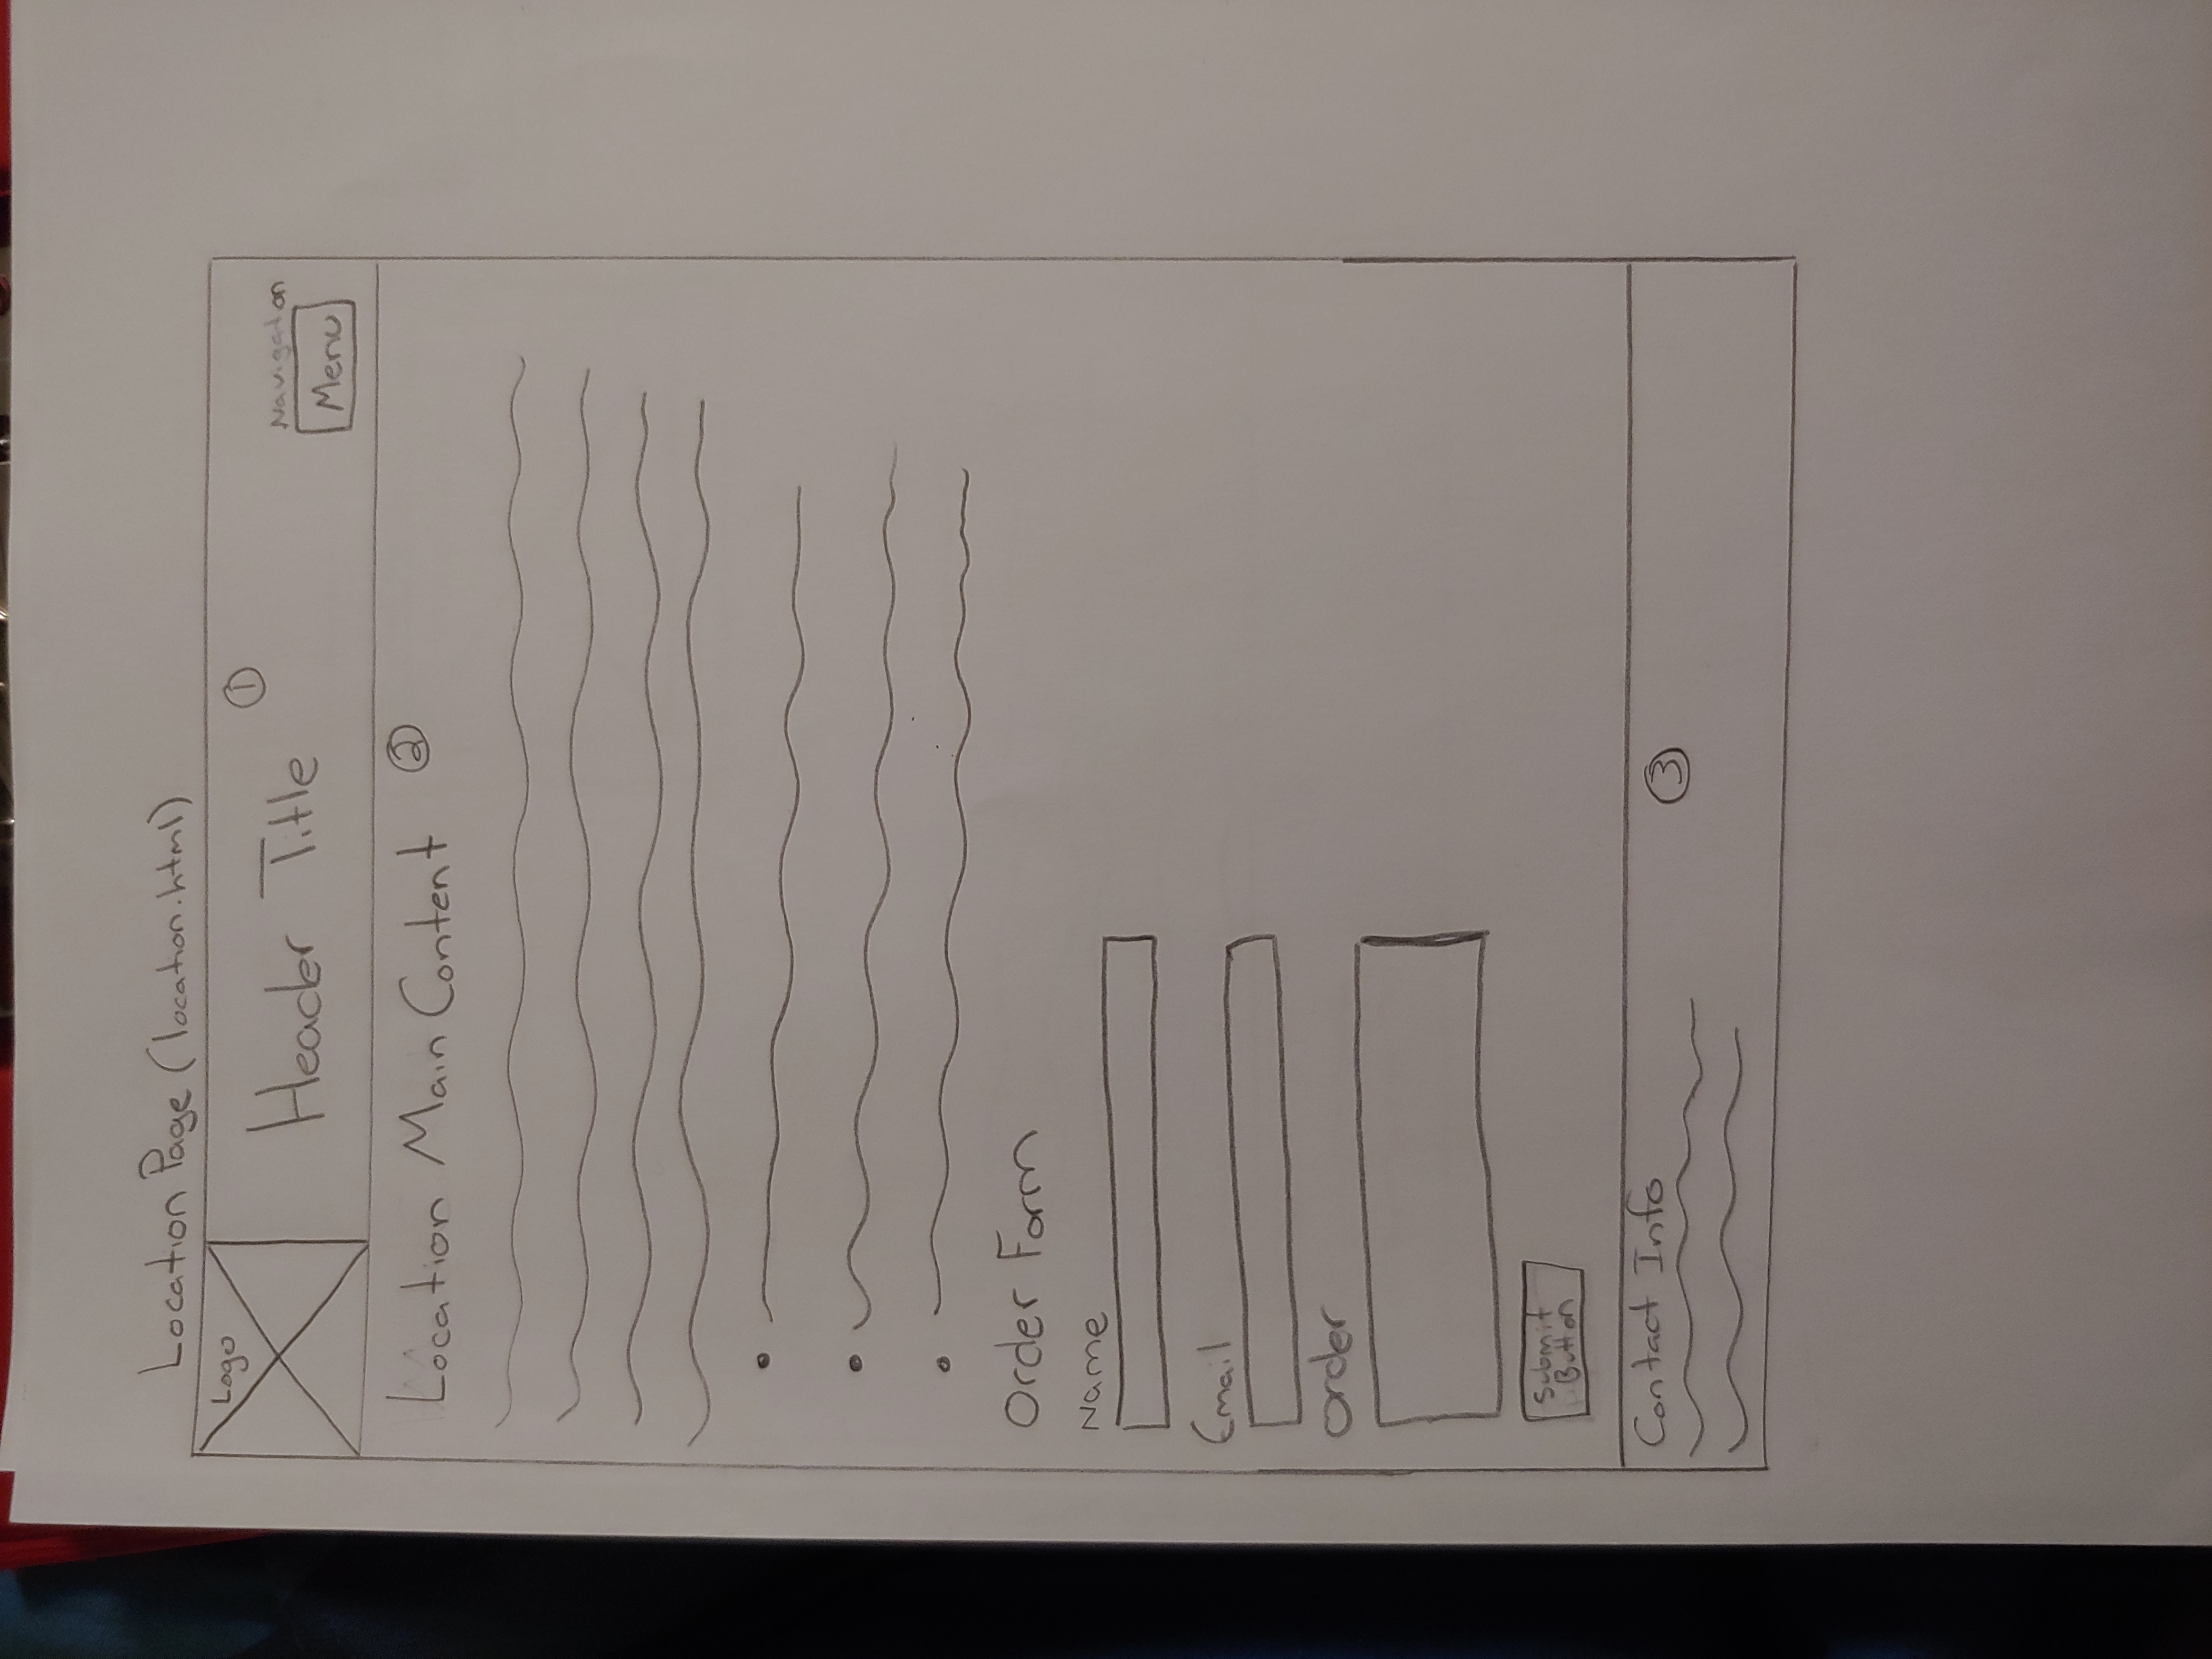 Location Page (location.html)
Logo
Header Title
1
Navigation
Menu
Location Main Content
2
Order Form
Name
Email
Order
Submit
Button
Contact Info
3